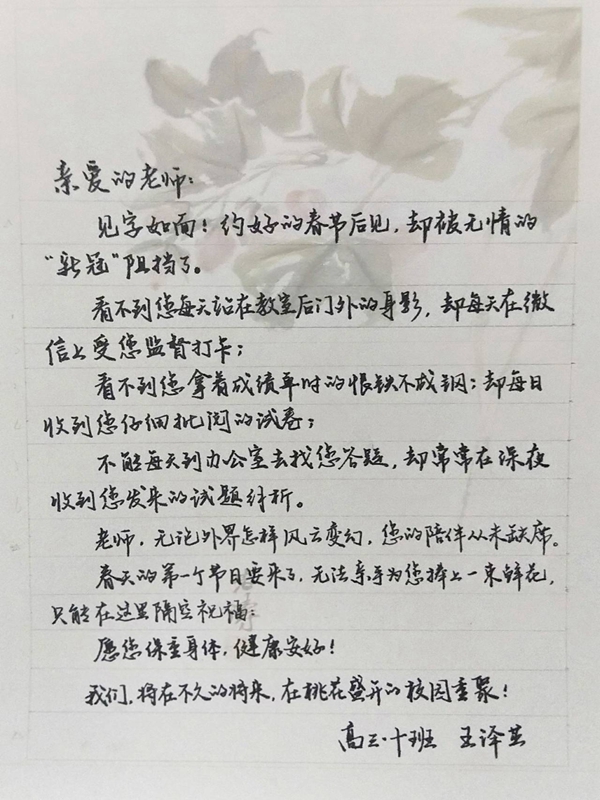 亲爱的老师:
见字如面!约好的春节后见,却被无情的
“新冠”阻挡了。
看不到您每天站在教室后门外的身影,却每天在微
信上受您监督打卡;
看不到您拿着成绩单时的恨铁不成钢;却每日
收到您仔细批阅的试卷;
不能每天到办公室去找您答疑,却常常在深夜
收到您发来的试题分析。
老师,无论外界怎样风云变幻,您的陪伴从未缺席。
春天的第一个节日要来了,无法亲手为您捧上一束鲜花,
只能在这里隔空祝福:
愿您保重身体,健康安好!
我们,将在不久的将来,在桃花盛开的校园重聚!
高三·十班 王泽芸